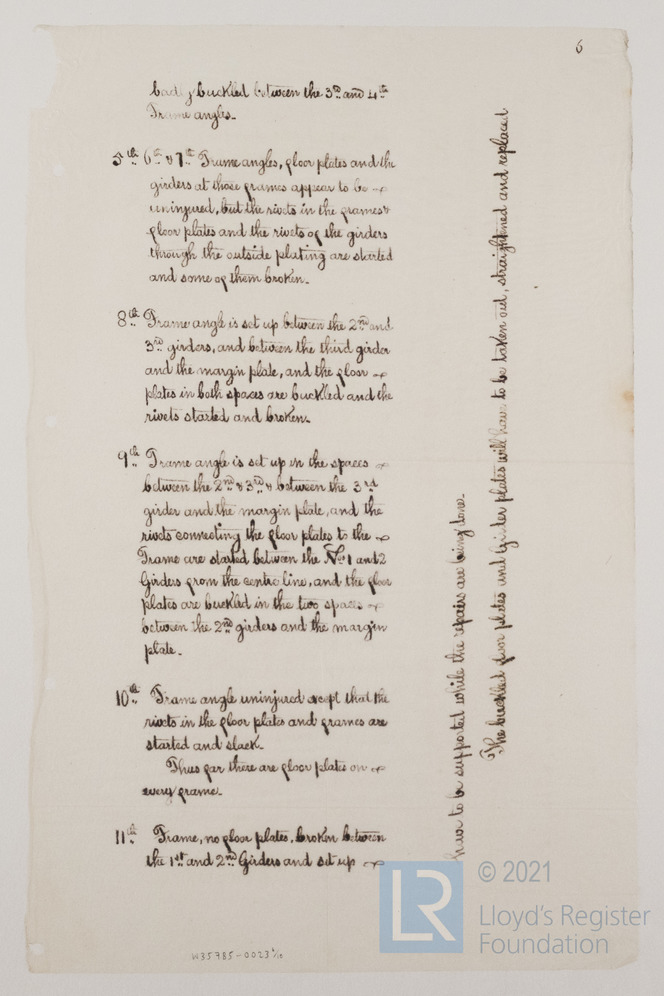 6
badly buckled between the 3rd and 4th
Frame angles.
5th 6th & 7th Frame angles, floor plates and the
girders at those frames appear to be
uninjured, but the rivets in the frames &
floor plates and the rivets of the girders
through the outside plating are started
and some of them broken.
8th Frame angle is set up between the 2nd and
3rd girders, and between the third girder
and the margin plate, and the floor
plates in both spaces are buckled and the
rivets started and broken.
9th Frame angle is set up in the spaces
between the 2nd & 3rd & between the 3rd
girder and the margin plate, and the
rivets connecting the floor plates to the
Frame are started between the Nos 1 and 2
Girders from the centre line, and the floor
plates are buckled in the two spaces
between the 2nd girders and the margin
plate.
10th Frame angle uninjured except that the
rivets in the floor plates and frames are
started and slack.
Thus far there are floor plates on
every frame.
11th Frame, no floor plates, broken between
the 1st and 2nd Girders and set up
have to be supported while the repairs are being done.
The buckled floor plates and Girder plates will have to be taken out, straightened and replaced
W35785-0023 6/12
LR
© 2021
Lloyd's Register
Foundation